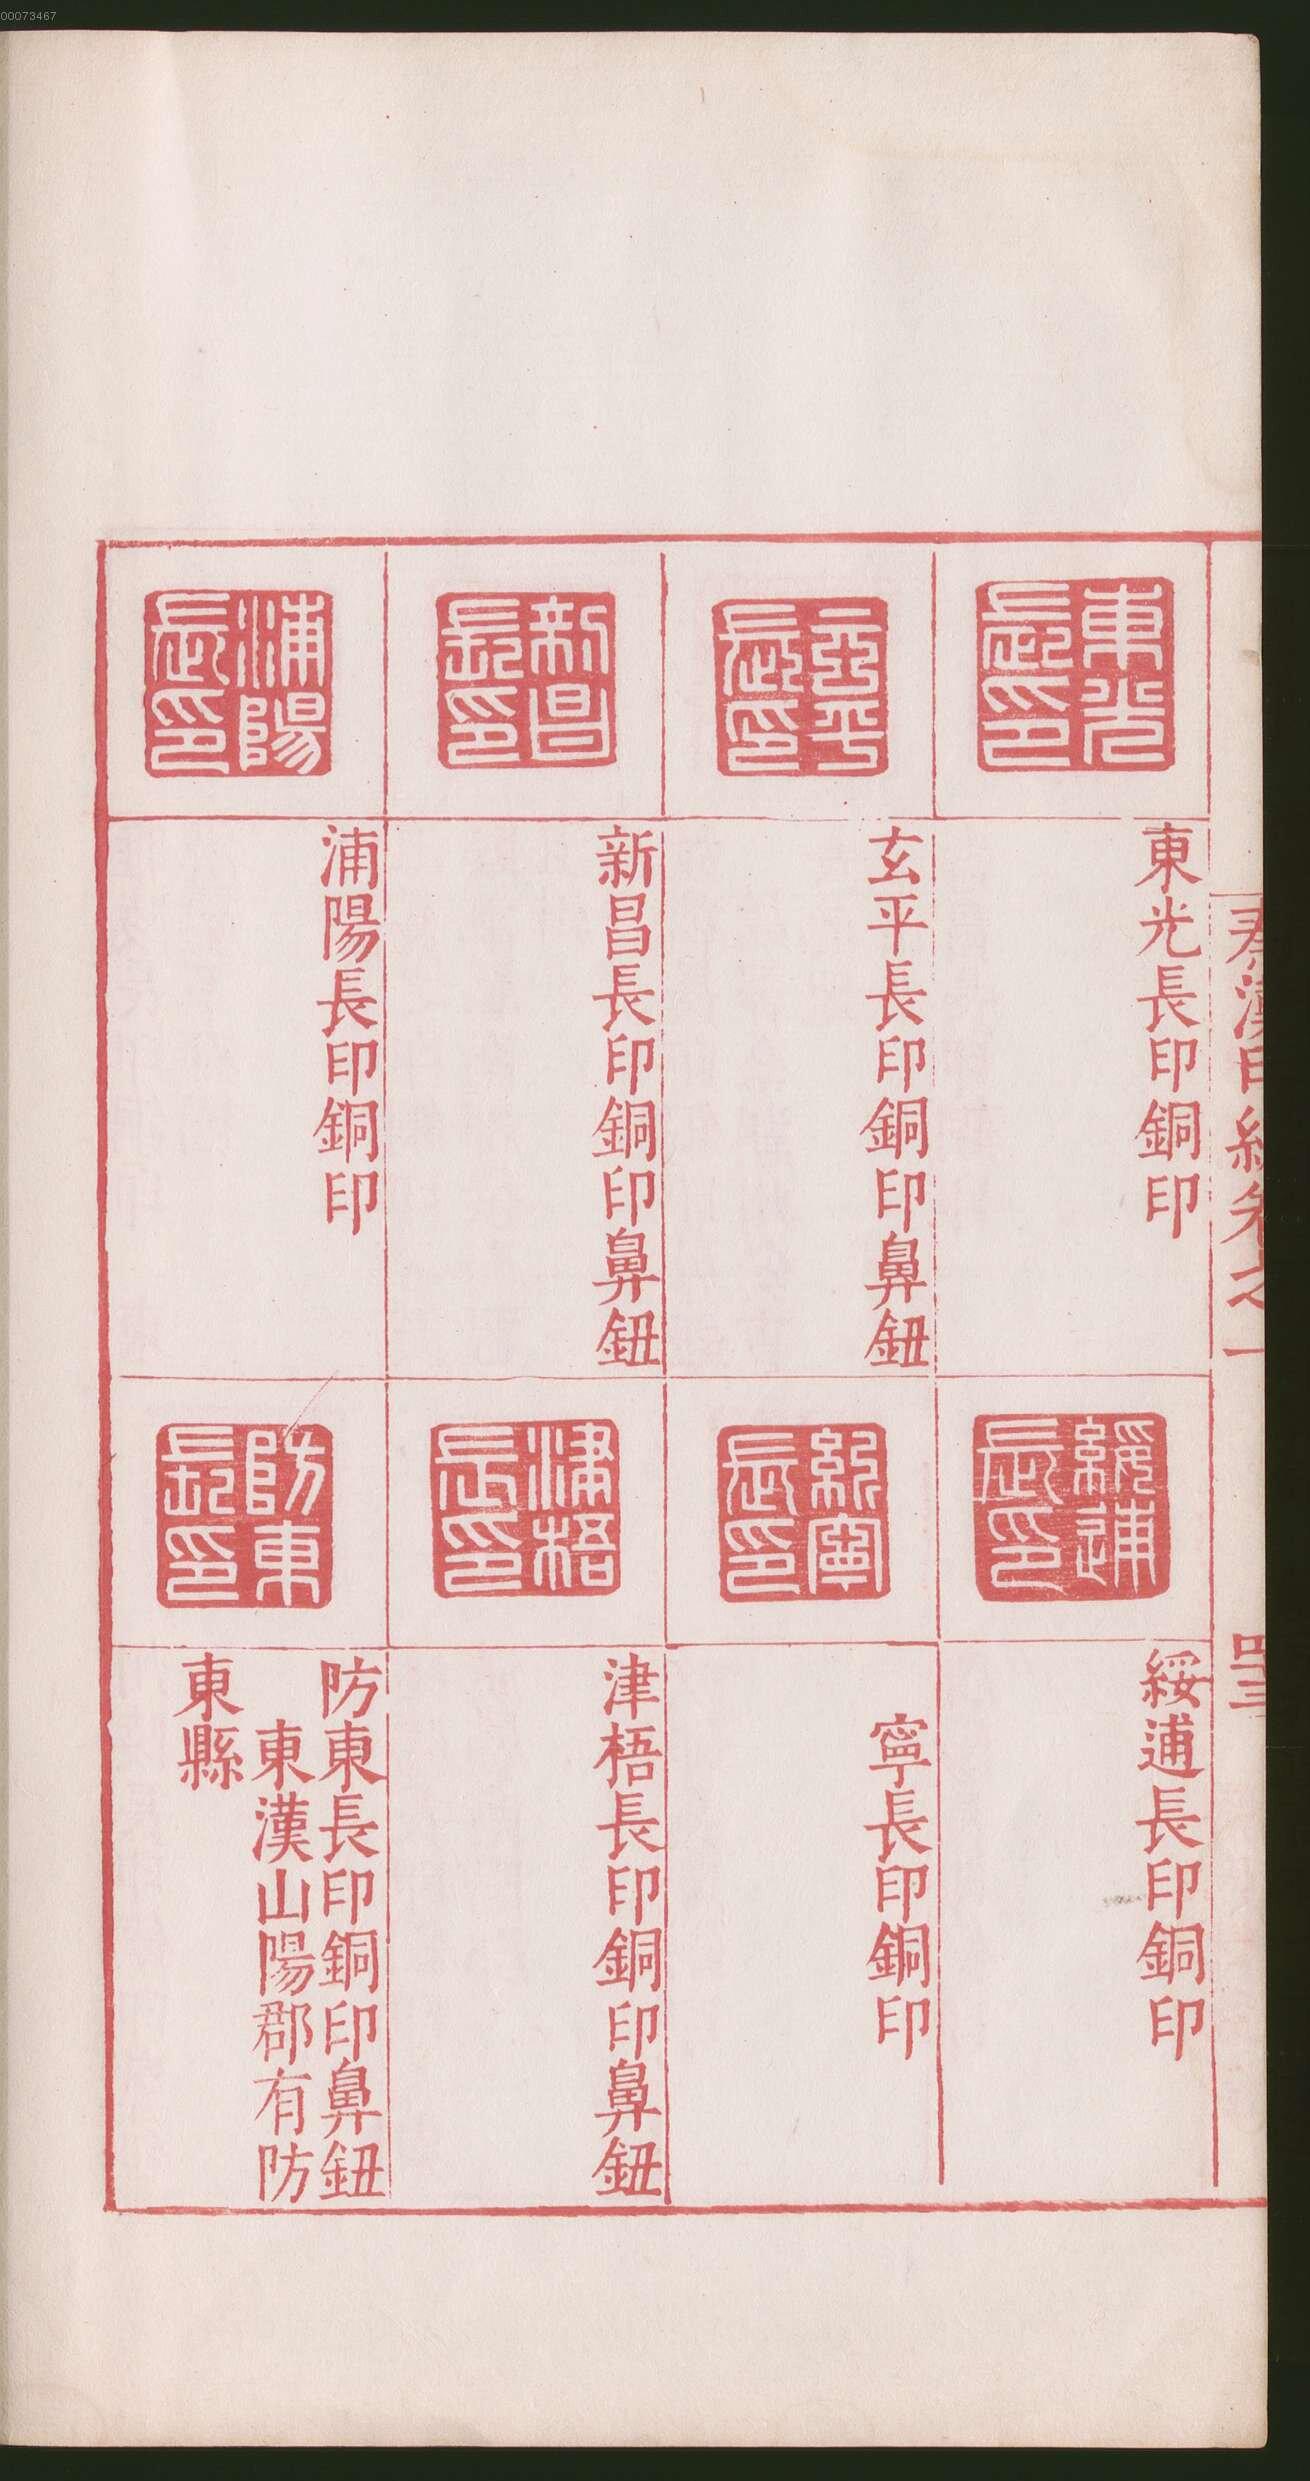 00073467
秦漢印統卷之一
東光
長印
東光長印銅印
玄平
長印
玄平長印銅印鼻鈕
新昌
長印
新昌長印銅印鼻鈕
浦陽
長印
浦陽長印銅印
綏逋
長印
綏逋長印銅印
寧
長印
寧長印銅印
津梧
長印
津梧長印銅印鼻鈕
防東
長印
防東長印銅印鼻鈕
東漢山陽郡有防
東縣